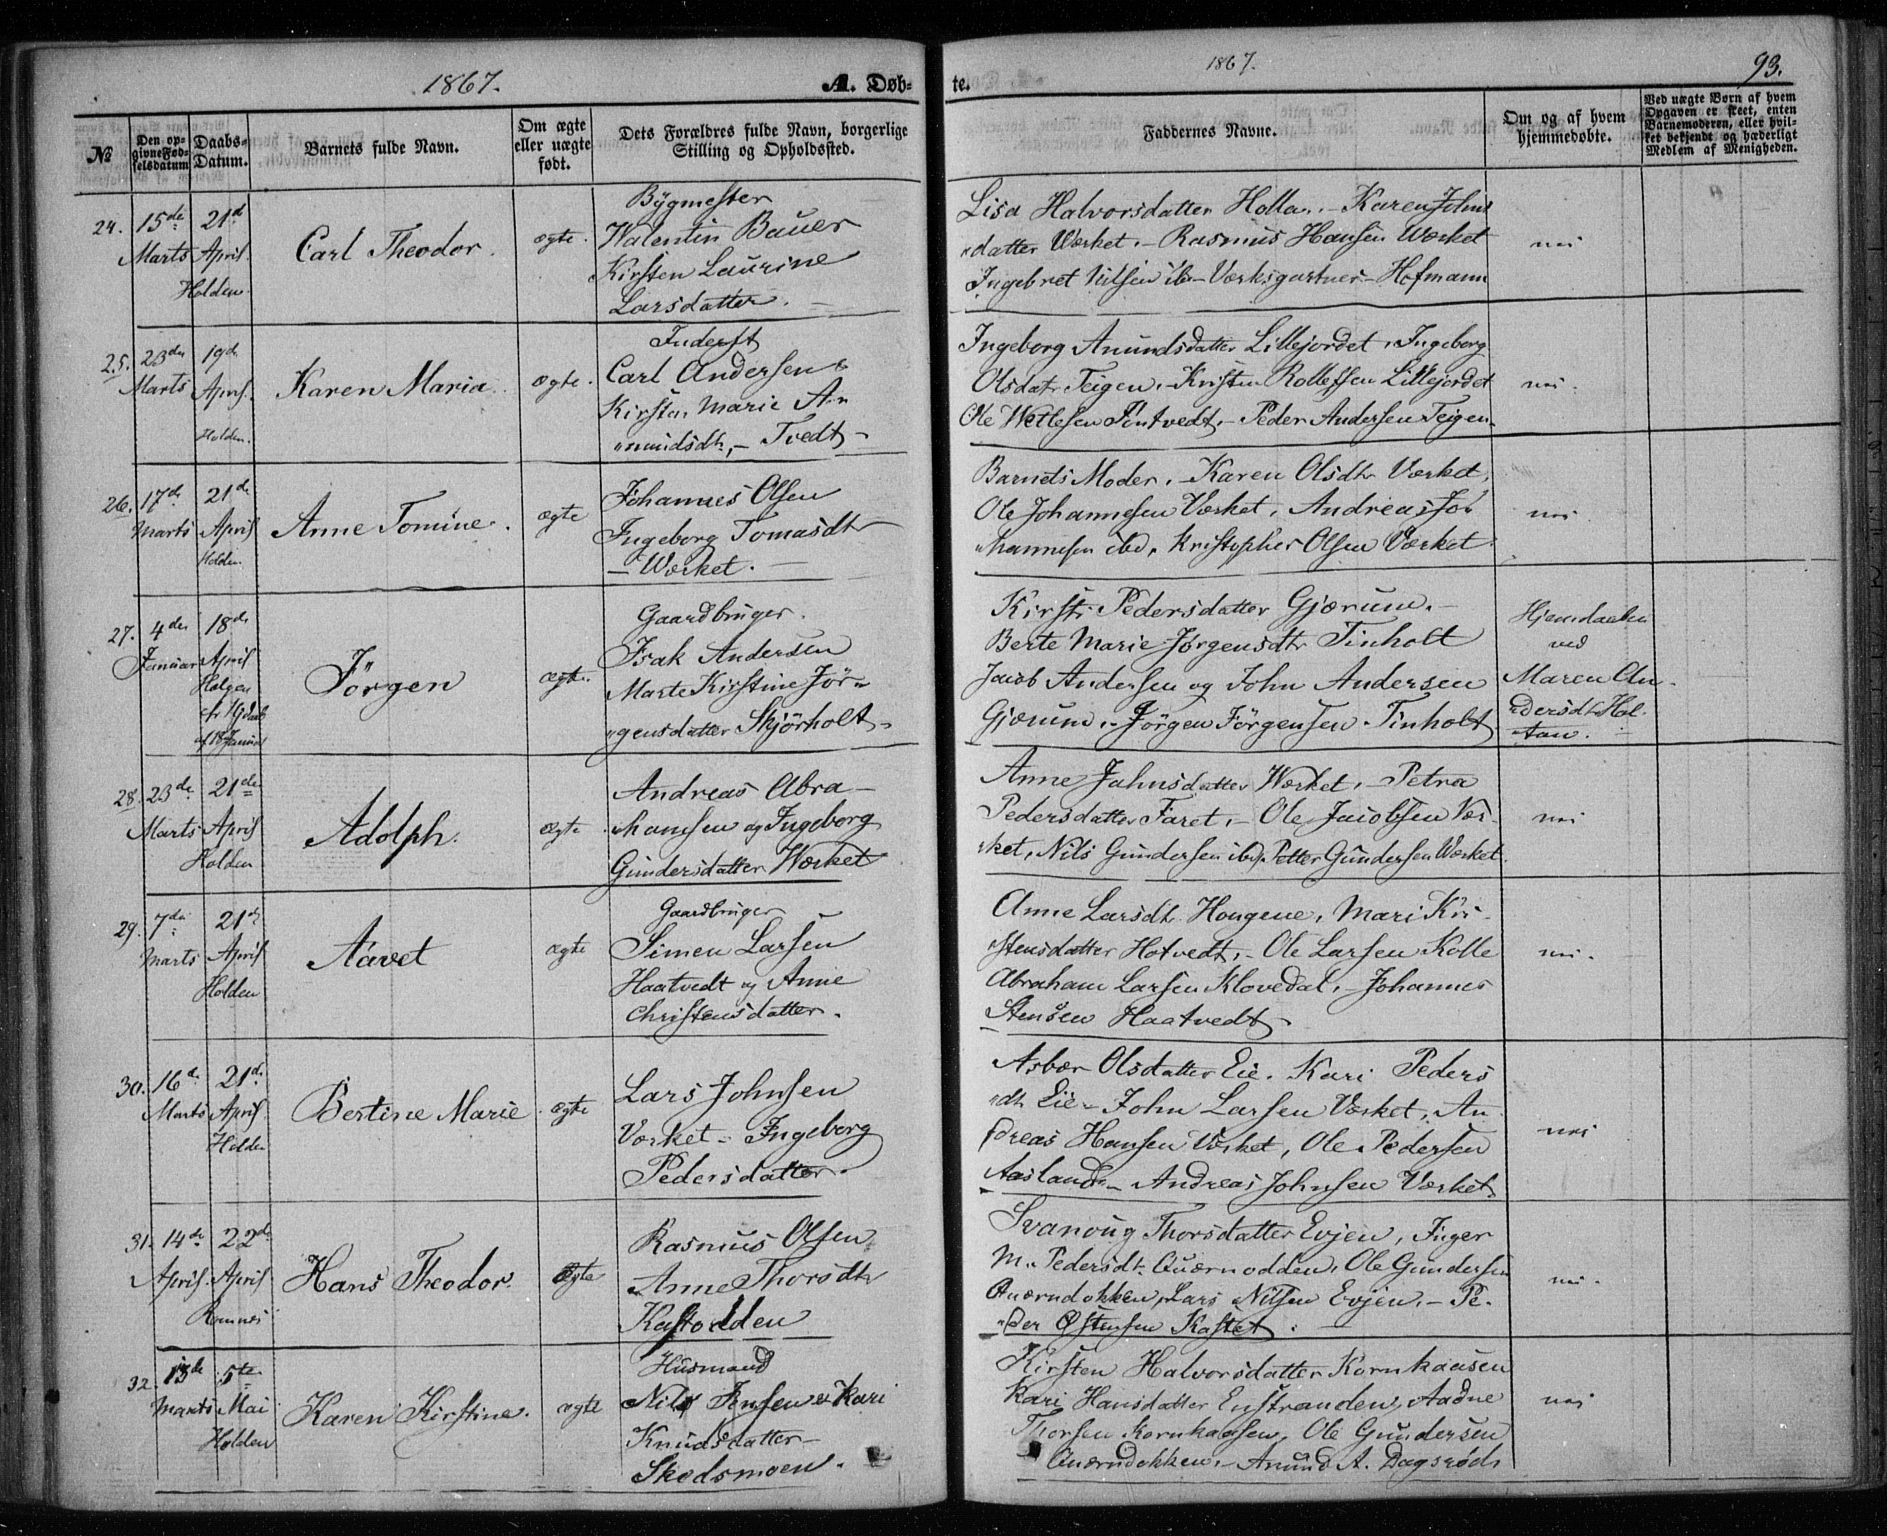 1867.
A. Døb-
te.
1867.
93.
№
Den op-
givne Fød-
selsdatum
Daabs-
Datum.
Barnets fulde Navn.
Om ægte
eller uægte
født.
Dets Forældres fulde Navn, borgerlige
Stilling og Opholdssted.
Faddernes Navne.
Om og af hvem
hjemmedøbte.
Ved uægte Børn af hvem
Opgaven er skeet, enten
Barnemoderen, eller hvil-
ket bekjendt og hæderligt
Medlem af Menigheden.
24.
15de
Marts
21d
April
Holden
Carl Theodor.
ægte.
Bygmester
Walentin Bauer
Kirsten Laurine
Larsdatter.
Lisa Halvorsdatter Holla. - Karen Johns
"datter Værket. - Rasmus Hansen Værket
Ingebret Nilsen ib - Værksgartner - Hofmann
nei
25.
23de
Marts
19de
April
Holden.
Karen Maria
ægte.
Inderst
Carl Andersen &
Kirsten Marie A-
"mundsdt, - Tvedt -
Ingeborg Amundsdatter Lillejordet, Ingeborg
Olsdatr Teigen, - Kristen Rollefsen Lillejordet
Ole Wetlesen Tintvedt, - Peder Andersen Teigen.
nei.
26.
17de
Marts
21de
April
Holden.
Anne Tomine.
ægte
Johannes Olsen
Ingeborg Tomasdtr
- Værket. -
Barnets Moder, - Karen Olsdtr Værket,
Ole Johannesen Værket, Andreas Jo-
"hannesen ibd, Kristopher Olsen Værket.
nei
27.
4de
Januar
18de
April
Helgen
Jörgen
ægte.
Gaardbruger.
Isak Andersen
Marte Kirstine Jör-
"gensdatter Skjörholt.
Kirsti Pedersdatter Gjærum. -
Berte Marie Jørgensdtr Tinholt
Jacob Andersen og John Andersen
Gjærum. - Jörgen Jörgensen Tinholt
Hjemdøebt
ved
Maren An-
dersdtr Hol-
tan.
28.
23de
Marts
21de
April
Holden
Adolph.
ægte.
Andreas Abra-
hamsen og Ingeborg
Gundersdatter Værket
Anne Jahnsdatter Værket, - Petra
Pedersdatter Faret, - Ole Jacobsen Vær-
"ket, Nils Gundersen ibd, Petter Gundersen Værket.
nei
29.
7de
Marts
21de
April
Holden
Aavet
ægte
Gaardbruger
Simen Larsen
Haatvedt og Anne
Christensdatter.
Anne Larsdt. Hougene, Mari Kri-
"stensdatter Hotvedt, - Ole Larsen Kolle
Abraham Larsen Klovedal, - Johannes
Stensen Haatvedt
nei.
30.
16de
Marts
21d.
April
Holden
Bertine Marie
ægte
Lars Johnsen
Værket - Ingeborg
Pedersdatter.
Asbør Olsdatter Eie. Kari Peders
"dt. Eie - John Larsen Værket, An-
dreas Hansen Værket, Ole Pedersen
Aasland - Andreas Johnsen Værket.
nei
31.
14de
April.
22de
April
Romnes
Hans Theodor.
ægte
Rasmus Olsen
Anne Thorsdtr
Kastodden
Svanoug Thorsdatter Evjen, Inger
M. Pedersdt. Quærnodden, Ole Gundersen
Quærndokken, Lars Nilsen Evjen, - Pe-
"der Østensen Kastet.
nei.
32.
13de
Marts
5te
Mai
Holden
Karen Kirstine.
ægte
Husmand
Nils Jensen & Kari
Knudsdatter -
Skedsmoen.
Kirsten Halvorsdatter Kornkaasen
Kari Hansdatter Enstranden, Aadne
Thorsen Kornkaasen, Ole Gundersen
Quærndokken, - Amund A. Dagsröds
nei